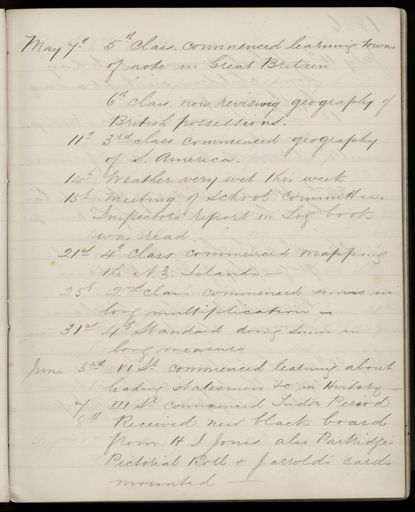 May 7th 5th Class. commenced learning towns
of note in Great Britain
6th Class now revising geography of
British possessions.
11th 3rd class commenced geography
of S. America.
14th Weather very wet this week
15th Meeting of School Committee.
Inspectors report in Log book
was read.
21st 4th Class commenced mapping
the N.Z. Islands —
25th 2nd Class commenced sums in
long multiplication —
31st 4th Standard doing sums in
long measure
June 3rd VI St. commenced learning about
leading statesmen &c in History —
7 III St. commenced Tudor Period
8th Received new black board
from H I Jones also Partridge
Pictorial Roll & Jarrold's cards
mounted —